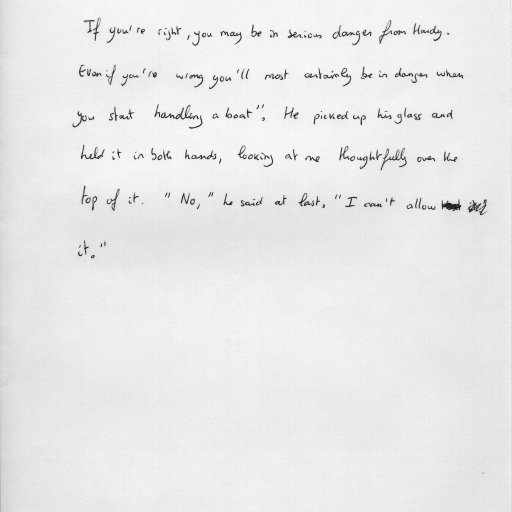 If you're right, you may be in serious danger from Hardy.
Even if you're wrong you'll most certainly be in danger when
you start handling a boat". He picked up his glass and
held it in both hands, looking at me thoughtfully over the
top of it. "No," he said at last, "I can't allow
it."